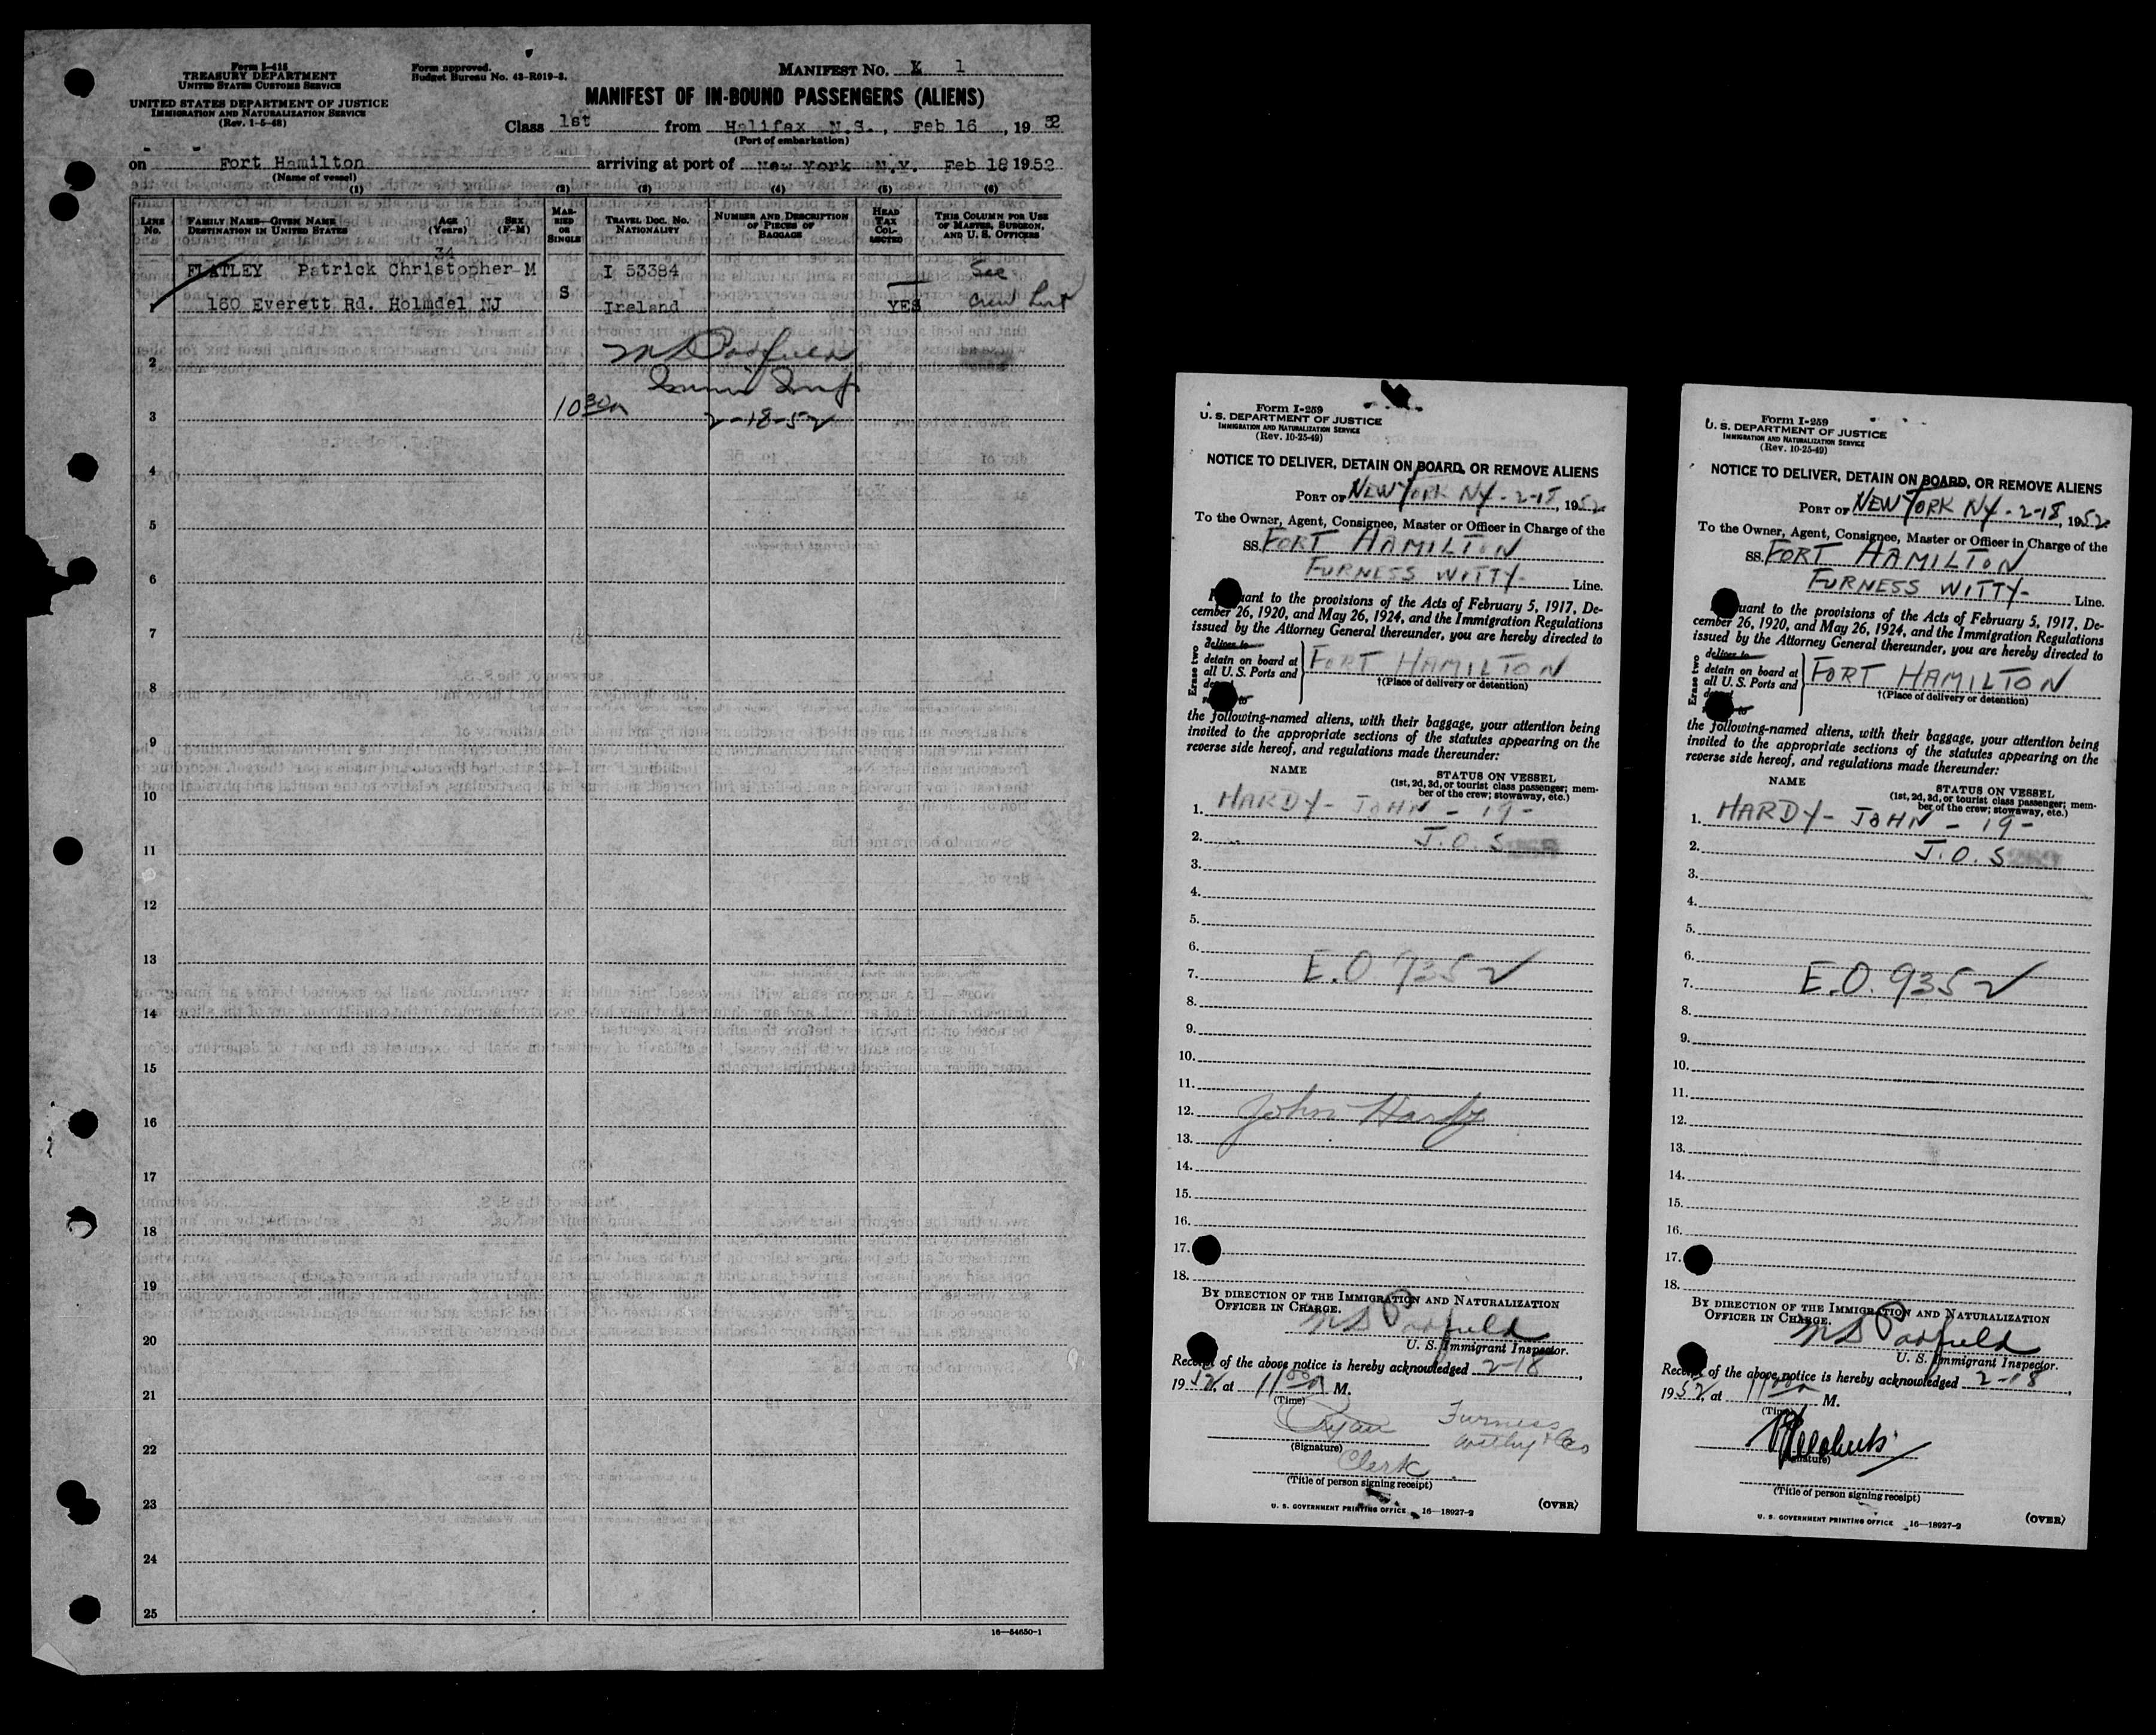 Form I-415
TREASURY DEPARTMENT
UNITED STATES CUSTOMS SERVICE
UNITED STATES DEPARTMENT OF JUSTICE
IMMIGRATION AND NATURALIZATION SERVICE
(Rev. 1-5-48)
Form approved.
Budget Bureau No. 43-R019-3.
MANIFEST NO. X 1
MANIFEST OF IN-BOUND PASSENGERS (ALIENS)
Class 1st from Halifax N.S., Feb 16, 19 52
(Port of embarkation)
on Fort Hamilton arriving at port of New York N.Y. Feb 18 1952
(Name of vessel)
(1) (2) (3) (4) (5) (6)
LINE No.
FAMILY NAME—GIVEN NAME
DESTINATION IN UNITED STATES
AGE (Years)
SEX (F-M)
MARRIED OR SINGLE
TRAVEL DOC. NO.
NATIONALITY
NUMBER AND DESCRIPTION OF PIECES OF BAGGAGE
HEAD TAX COLLECTED
THIS COLUMN FOR USE OF MASTER, SURGEON, AND U. S. OFFICERS
34
FLATLEY Patrick Christopher M I 53384 See
1 160 Everett Rd. Holmdel NJ S Ireland YES Crew List
2
3 10 30 a 2-18-52
4
5
6
7
8
9
10
11
12
13
14
15
16
17
18
19
20
21
22
23
24
25
16—54650-1
Form I-259
U. S. DEPARTMENT OF JUSTICE
IMMIGRATION AND NATURALIZATION SERVICE
(Rev. 10-25-49)
NOTICE TO DELIVER, DETAIN ON BOARD, OR REMOVE ALIENS
PORT OF NEW YORK NY - 2-18, 1952
To the Owner, Agent, Consignee, Master or Officer in Charge of the
SS. FORT HAMILTON
FURNESS WITTY- Line.
uant to the provisions of the Acts of February 5, 1917, De-
cember 26, 1920, and May 26, 1924, and the Immigration Regulations
issued by the Attorney General thereunder, you are hereby directed to
Erase two
deliver to
detain on board at
all U. S. Ports and
FORT HAMILTON
†(Place of delivery or detention)
the following-named aliens, with their baggage, your attention being
invited to the appropriate sections of the statutes appearing on the
reverse side hereof, and regulations made thereunder:
NAME
STATUS ON VESSEL
(1st, 2d, 3d, or tourist class passenger; mem-
ber of the crew; stowaway, etc.)
1. HARDY- JOHN - 19-
2. J.O.S
3.
4.
5.
6.
7. E.O. 9352
8.
9.
10.
11.
12. John Hardy
13.
14.
15.
16.
17.
18.
BY DIRECTION OF THE IMMIGRATION AND NATURALIZATION
OFFICER IN CHARGE.
U. S. Immigrant Inspector.
Receipt of the above notice is hereby acknowledged 2-18,
1952, at 11 00 a M.
(Time)
Ryan Furness
(Signature) Withy & Co
Clerk
(Title of person signing receipt)
U. S. GOVERNMENT PRINTING OFFICE 16—18927-2
(OVER)
Form I-259
U. S. DEPARTMENT OF JUSTICE
IMMIGRATION AND NATURALIZATION SERVICE
(Rev. 10-25-49)
NOTICE TO DELIVER, DETAIN ON BOARD, OR REMOVE ALIENS
PORT OF NEW YORK NY - 2-18, 1952
To the Owner, Agent, Consignee, Master or Officer in Charge of the
SS. FORT HAMILTON
FURNESS WITTY- Line.
uant to the provisions of the Acts of February 5, 1917, De-
cember 26, 1920, and May 26, 1924, and the Immigration Regulations
issued by the Attorney General thereunder, you are hereby directed to
Erase two
deliver to
detain on board at
all U. S. Ports and
FORT HAMILTON
†(Place of delivery or detention)
the following-named aliens, with their baggage, your attention being
invited to the appropriate sections of the statutes appearing on the
reverse side hereof, and regulations made thereunder:
NAME
STATUS ON VESSEL
(1st, 2d, 3d, or tourist class passenger; mem-
ber of the crew; stowaway, etc.)
1. HARDY- JOHN - 19-
2. J.O.S
3.
4.
5.
6.
7. E.O. 9352
8.
9.
10.
11.
12.
13.
14.
15.
16.
17.
18.
BY DIRECTION OF THE IMMIGRATION AND NATURALIZATION
OFFICER IN CHARGE.
U. S. Immigrant Inspector.
Receipt of the above notice is hereby acknowledged 2-18,
1952, at 11 00 a M.
(Time)
(Signature)
(Title of person signing receipt)
U. S. GOVERNMENT PRINTING OFFICE 16—18927-2
(OVER)